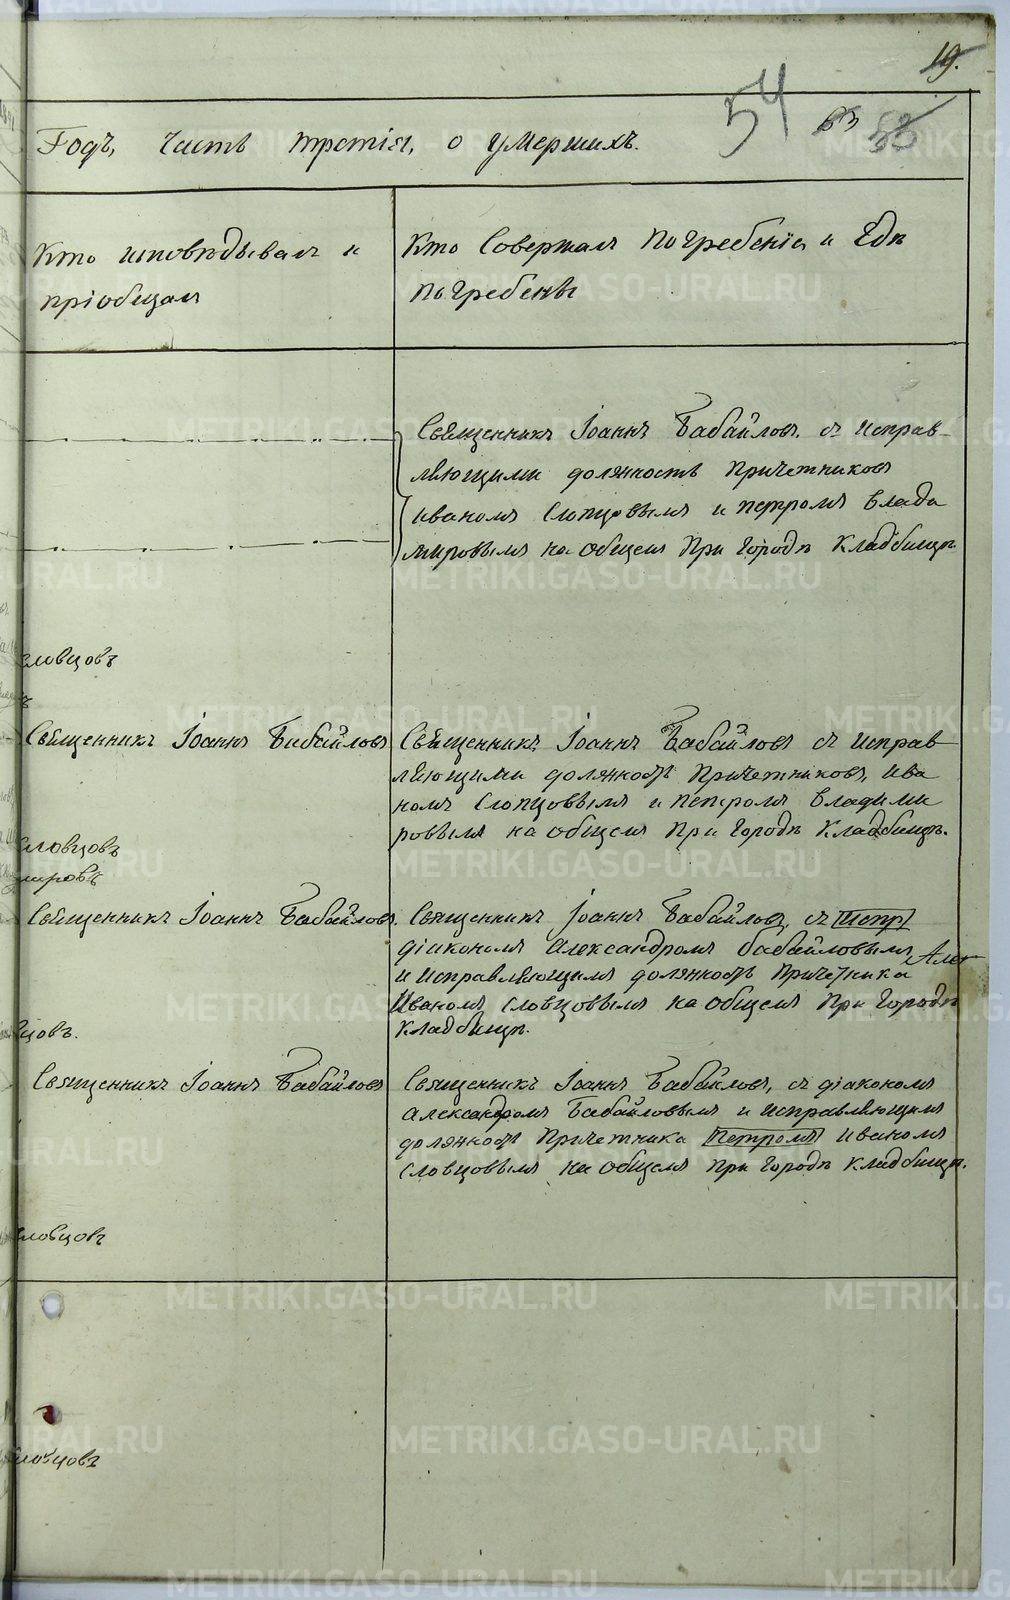 19.
54 53
Годъ, часть третія, о умершихъ.
Кто исповѣдывалъ и
пріобщалъ
Кто Совершалъ Погребеніе и Гдѣ
погребены
Священникъ Іоаннъ Бабайловъ, съ исправ-
ляющими должность Причетниковъ
Иваномъ Словцовымъ и петромъ Влади
мировымъ на общемъ При Городѣ Кладбищѣ.
словцовъ
Священникъ Іоаннъ Бабайловъ
Священникъ Іоаннъ Бабайловъ съ исправ
ляющими должность Причетниковъ, Ива
номъ Словцовымъ и петромъ Владими
ровымъ на общемъ При Городѣ Кладбищѣ.
словцовъ
мировъ
Священникъ Іоаннъ Бабайловъ.
Священникъ Іоаннъ Бабайлов, съ испр
діакономъ Александромъ бабайловымъ Алек
и исправляющимъ должность Причетника
Иваномъ Словцовымъ на общемъ При Городѣ
Кладбищѣ.
цовъ.
Священникъ Іоаннъ Бабайловъ
Священникъ Іоаннъ Бабайловъ, съ діакономъ
Александромъ Бабайловымъ и исправляющимъ
должность Причетника Петромъ Иваномъ
Словцовымъ на общемъ при Городѣ Кладбищѣ.
словцовъ
словцовъ
METRIKI.GASO-URAL.RU